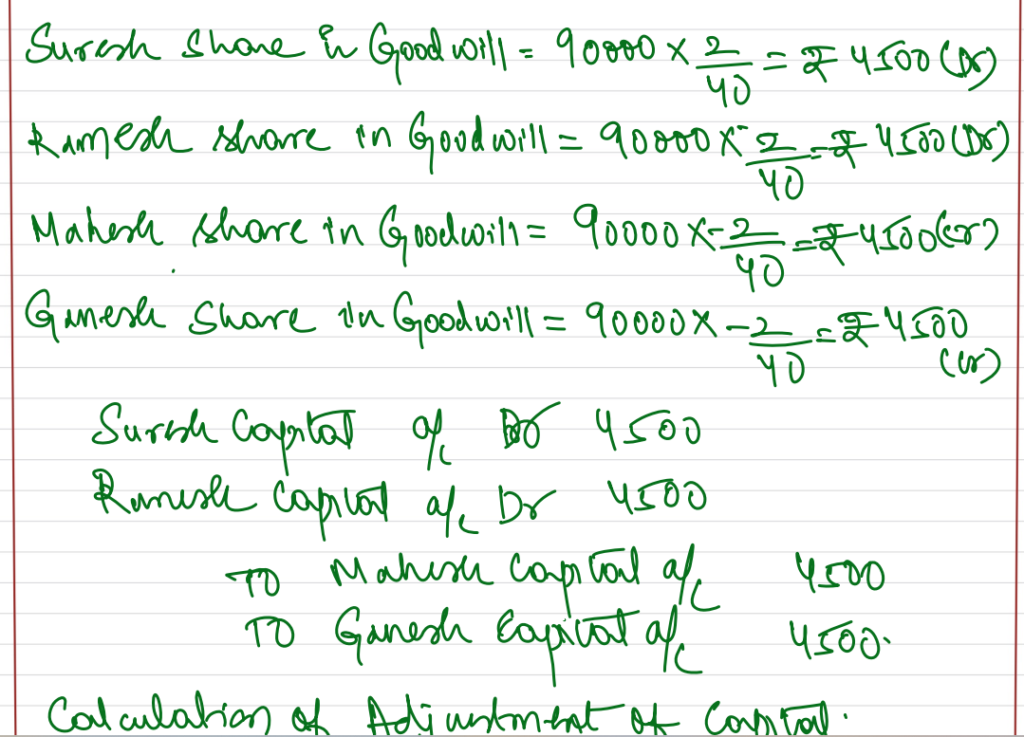 Suresh Share in Goodwill = 90000 × 2/40 = ₹ 4500 (Dr)
Ramesh share in Goodwill = 90000 × 2/40 = ₹ 4500 (Dr)
Mahesh share in Goodwill = 90000 × -2/40 = ₹ 4500 (Cr)
Ganesh Share in Goodwill = 90000 × -2/40 = ₹ 4500 (Cr)
Suresh Capital a/c Dr 4500
Ramesh Capital a/c Dr 4500
TO Mahesh Capital a/c 4500
TO Ganesh Capital a/c 4500.
Calculation of Adjustment of Capital.